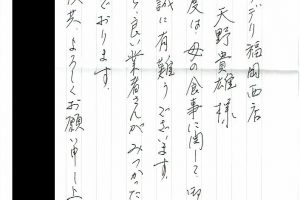 デリ福岡西店
天野貴雄様
度は、母の食事に関して
誠に有難うございます。
ら、良い業者さんがみつかった
でおります。
共よろしくお願い申し上